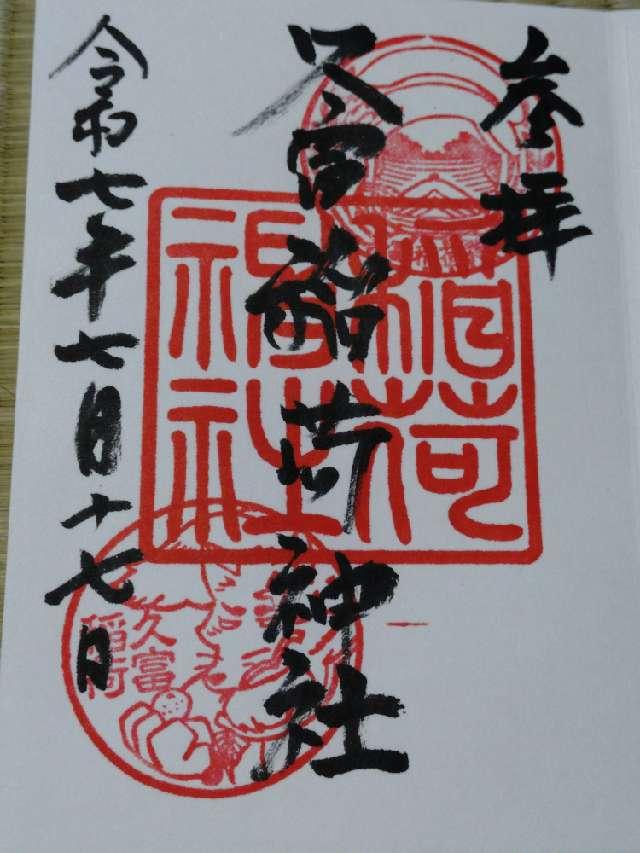 参拝
久富稲荷神社
令和七年七月十七日
稲荷神社
久富
稲荷